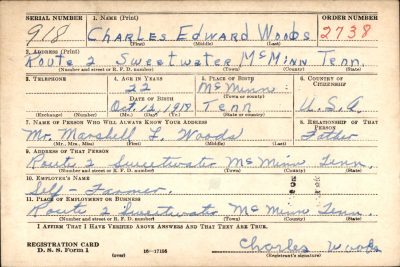 SERIAL NUMBER 1. NAME (Print) ORDER NUMBER
918 CHARLES EDWARD WOODS 2738
(First) (Middle) (Last)
2. ADDRESS (Print)
Route 2 Sweetwater McMinn Tenn.
(Number and street or R. F. D. number) (Town) (County) (State)
3. TELEPHONE 4. AGE IN YEARS 5. PLACE OF BIRTH 6. COUNTRY OF CITIZENSHIP
22 McMinn
DATE OF BIRTH (Town or county)
Oct. 12, 1918 Tenn U.S.A.
(Exchange) (Number) (Mo.) (Day) (Yr.) (State or country)
7. NAME OF PERSON WHO WILL ALWAYS KNOW YOUR ADDRESS 8. RELATIONSHIP OF THAT PERSON
Mr. Marshell L. Woods Father
(Mr., Mrs., Miss) (First) (Middle) (Last)
9. ADDRESS OF THAT PERSON
Route 2 Sweetwater McMinn Tenn.
(Number and street or R. F. D. number) (Town) (County) (State)
10. EMPLOYER'S NAME
Self - Farmer.
11. PLACE OF EMPLOYMENT OR BUSINESS
Route 2 Sweetwater McMinn Tenn.
(Number and street or R. F. D. number) (Town) (County) (State)
I AFFIRM THAT I HAVE VERIFIED ABOVE ANSWERS AND THAT THEY ARE TRUE.
REGISTRATION CARD
D. S. S. Form 1 16—17105 Charles Woods
(Registrant's signature)